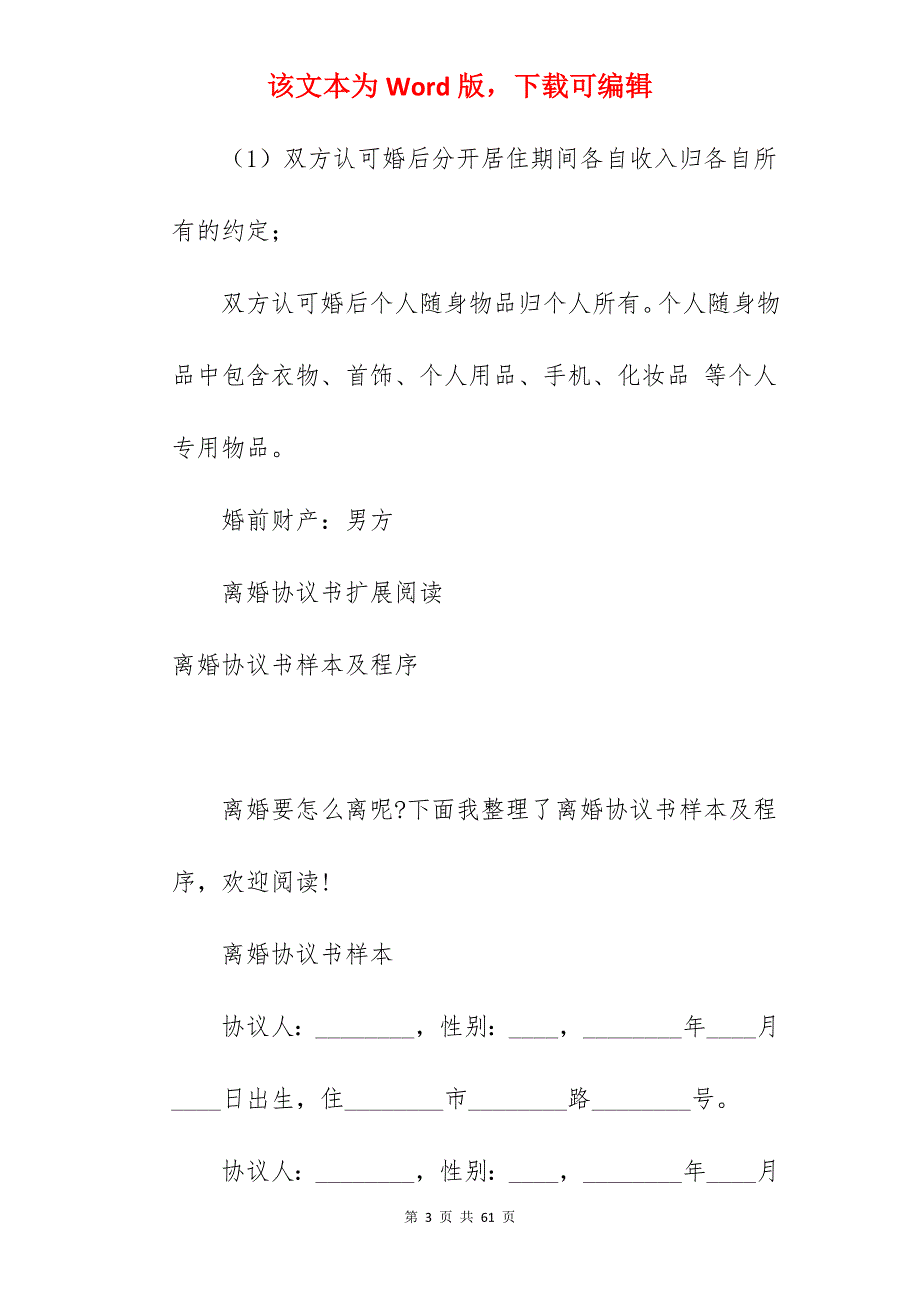 该文本为 Word 版，下载可编辑
（1）双方认可婚后分开居住期间各自收入归各自所
有的约定；
双方认可婚后个人随身物品归个人所有。个人随身物
品中包含衣物、首饰、个人用品、手机、化妆品 等个人
专用物品。
婚前财产：男方
离婚协议书扩展阅读
离婚协议书样本及程序
离婚要怎么离呢?下面我整理了离婚协议书样本及程
序，欢迎阅读!
离婚协议书样本
协议人：________，性别：____，________年____月
____日出生，住________市________路________号。
协议人：________，性别：____，________年____月
第 3 页 共 61 页